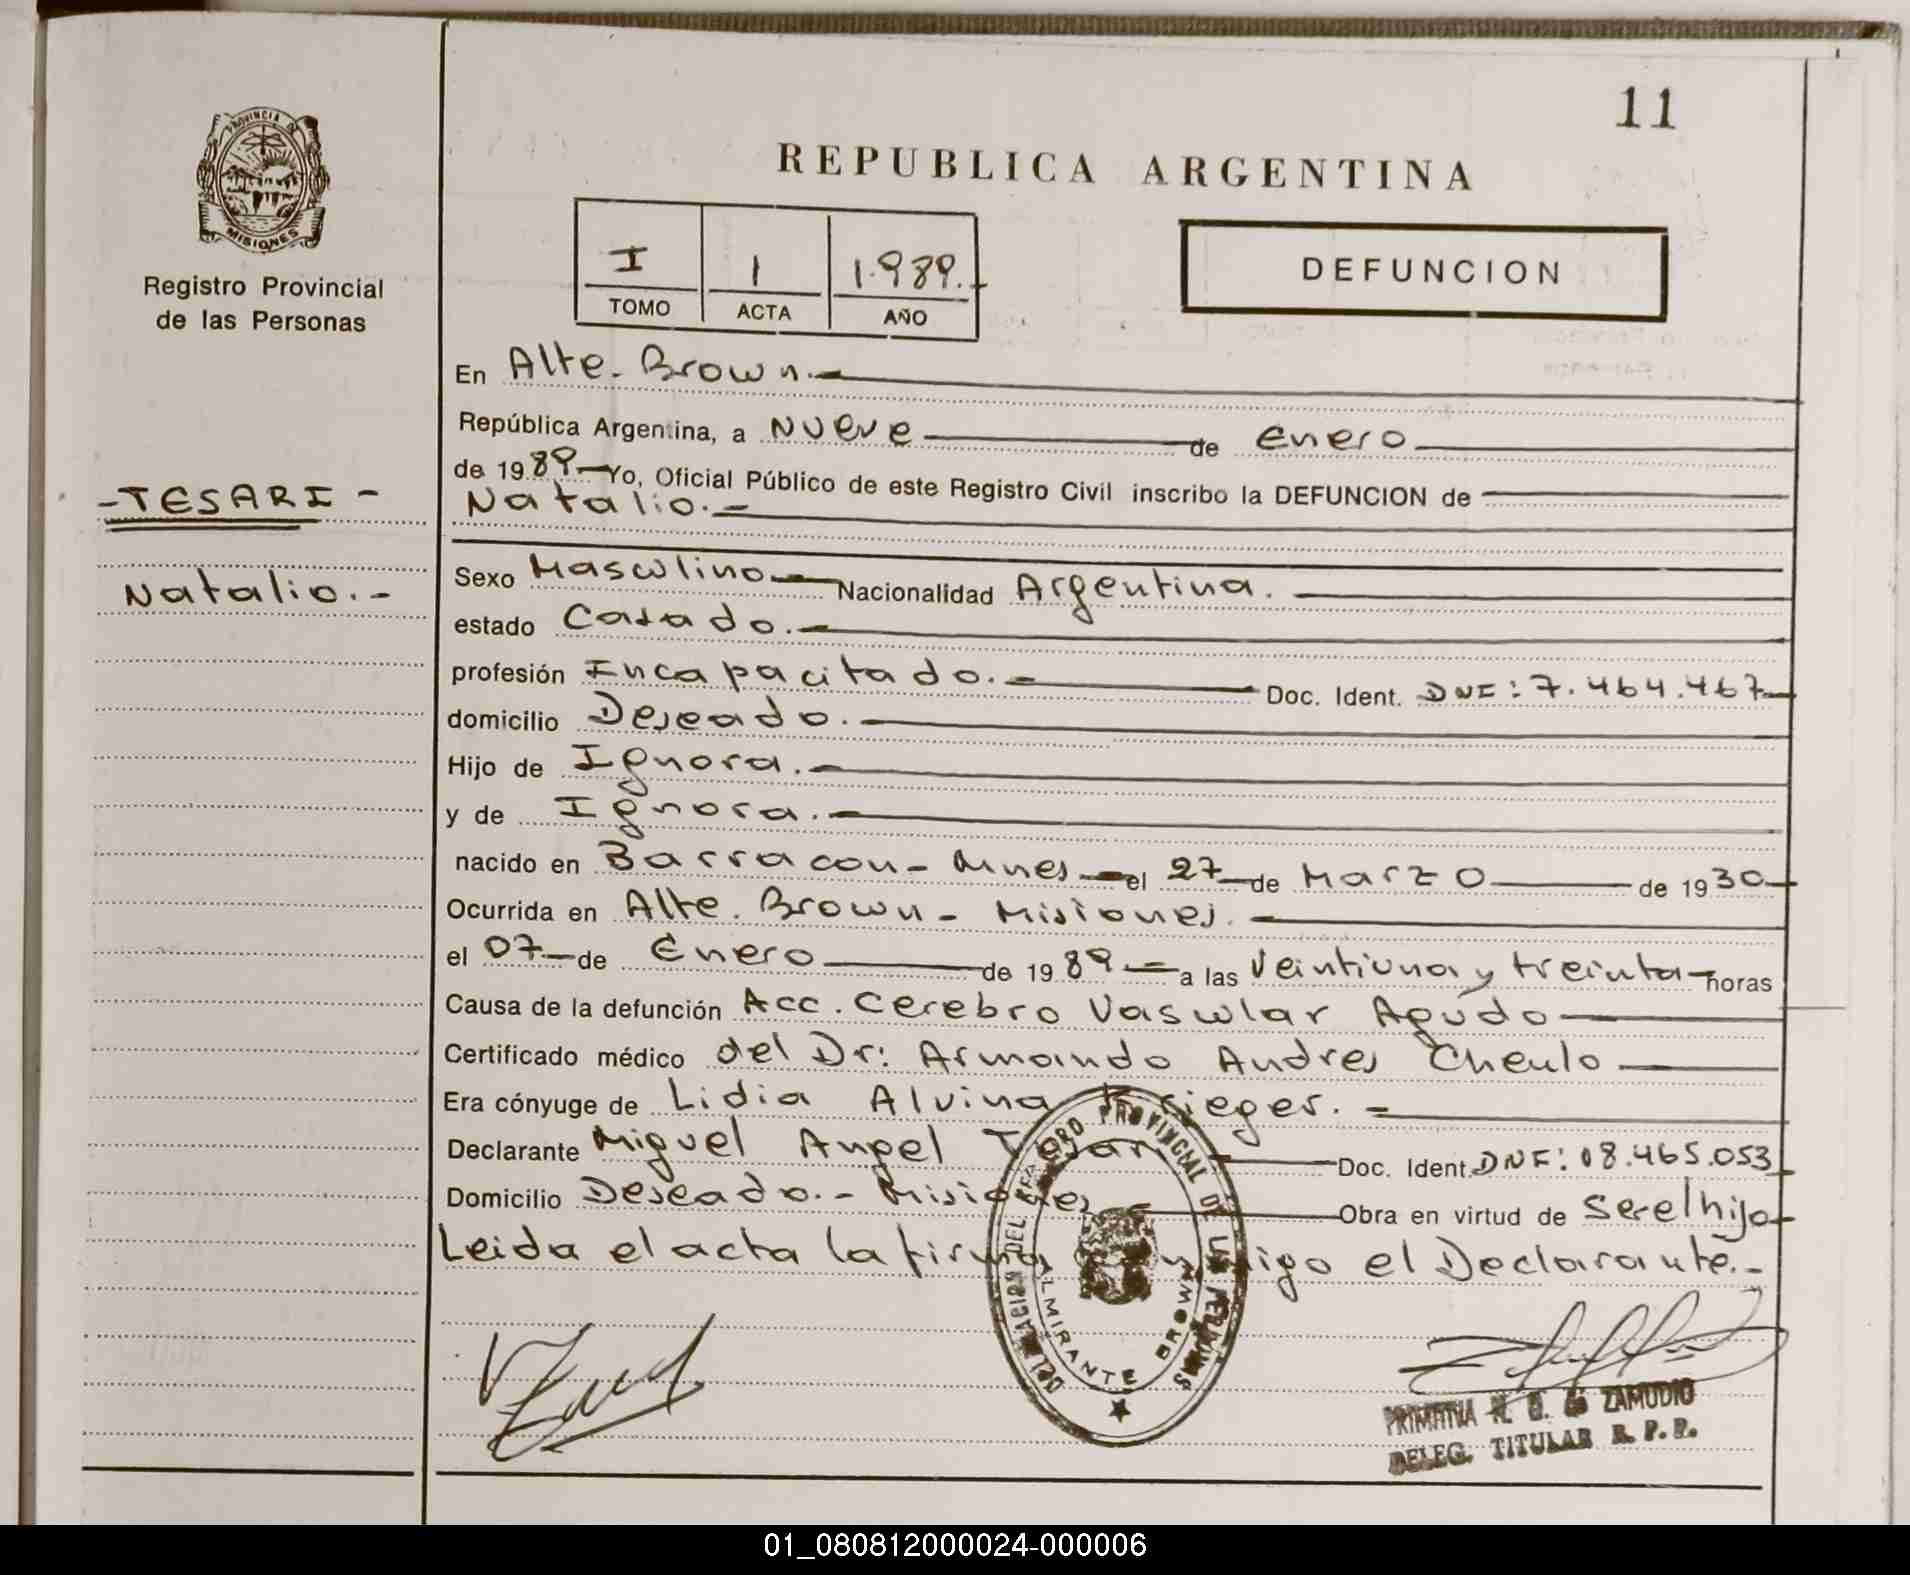 11
PROVINCIA DE
MISIONES
Registro Provincial
de las Personas
REPUBLICA ARGENTINA
I 1 1.989.-
TOMO ACTA AÑO
DEFUNCION
En Alte. Brown.-
República Argentina, a Nueve de Enero
de 1989 Yo, Oficial Público de este Registro Civil inscribo la DEFUNCION de
- TESARI -
Natalio.-
Natalio.-
Sexo Masculino Nacionalidad Argentina.
estado Casado.-
profesión Incapacitado.- Doc. Ident. DNI: 7.464.467
domicilio Deseado.-
Hijo de Ignora.-
y de Ignora.-
nacido en Barracon - Mnes - el 27 de Marzo de 1930
Ocurrida en Alte. Brown - Misiones.-
el 07 de Enero de 1989 a las Veintiuna y treinta horas
Causa de la defunción Acc. Cerebro Vascular Agudo
Certificado médico del Dr: Armando Andres Cheulo
Era cónyuge de Lidia Alvina Krieger.-
Declarante Miguel Angel Tesari Doc. Ident. DNI: 08.465.053
Domicilio Deseado.- Misiones Obra en virtud de Ser el hijo
Leida el acta la firma conmigo el Declarante.-
DELEGACION DEL REGISTRO PROVINCIAL DE LAS PERSONAS
ALMIRANTE BROWN
PRIMITIVA N. G. de ZAMUDIO
DELEG. TITULAR R. P. P.
01_080812000024-000006